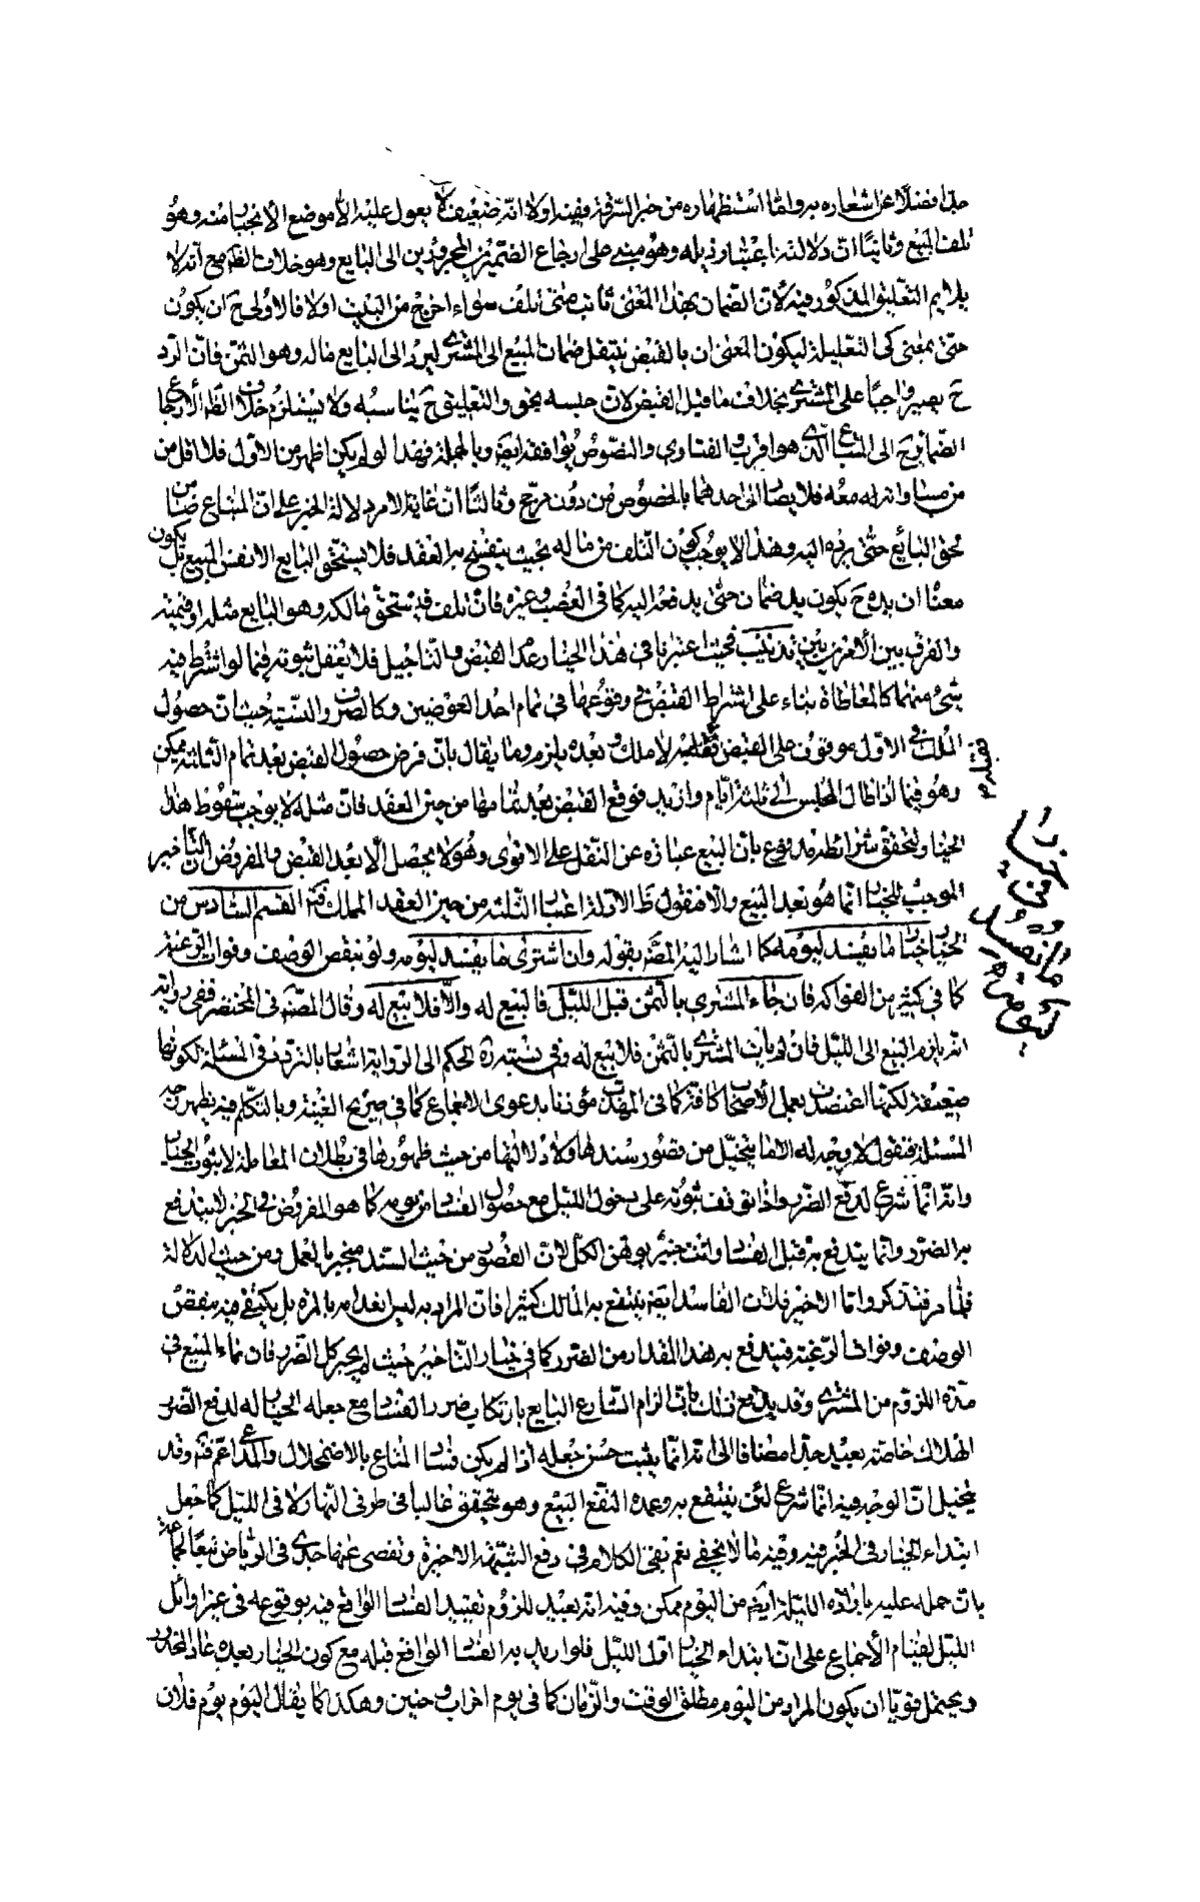 جدا فضلا عن اشعاره به واما استظهاره من خبر السرقة ففيه اولا انه ضعيف لا يعول عليه الا موضع الانجبار منه وهو
تلف المبيع وثانيا ان دلالته باعتبار ذيله وهو مبنى على ارجاع الضميرين المجرورين الى البايع وهو خلاف الظ مع انه لا
يلايم التعليق المذكور فيه لان الضمان بهذا المعنى ثابت متى تلف سواء اخرج من البيت اولا فالاولى ح ان يكون
حتى بمعنى كى التعليلة ليكون المعنى ان بالقبض ينتقل ضمان المبيع الى المشترى ليرد الى البايع ماله وهو الثمن فان الرد
ح يصير واجبا على المشترى بخلاف ما قبل القبض لان حبسه بحق والتعليق ح يناسبه ولا يستلزم خلاف الظ الا ارجاع
الضمائر ح الى المبتاع الذى هو اقرب والفتاوى والنصوص توافقه ايضا وبالجملة فهذا لو لم يكن اظهر من الاول فلا اقل من
من مساواته له معه فلا يصار الى احدهما بالخصوص من دون مرجح وثالثا ان غاية الامر دلالة الخبر على ان المبتاع ضامن
لحق البائع حتى يرده اليه وهذا لا يوجب كون التلف من ماله بحيث ينفسخ به العقد فلا يستحق البايع الا نفس المبيع بل يكون
معناه ان يده ح يكون يد ضمان حتى يدفعه اليه كما في الغصب وغيره فان تلف فيستحق مالكه وهو البايع مثله او قيمته
والفرق بين الامرين بين تذنيب فحيث اعتبرنا في هذا الخيار عدم القبض والتاجيل فلا يعقل ثبوته فيما لو اشترط فيه
شئ منهما كالمعاطاة بناء على اشتراط القبض في وقوعها في تمام احد العوضين وكالصرف والنسية حيث ان حصول
الملك في الاول موقوف على القبض فقبله لا ملك وبعده يلزم وما يقال بان فرض حصول القبض بعد تمام الثلثة ممكن
وهو فيما اذا طال المجلس الى ثلثة ايام وازيد فوقع القبض بعد تمامها من حين العقد فان مثله لا يوجب سقوط هذا
الخيار لتحقق شرائطه مدفوع بان البيع عبارة عن النقل على الاقوى وهو لا يحصل الا بعد القبض والمفروض التاخير
الموجب للخيار انما هو بعد البيع والا فنقول ظ الادلة اعتبار الثلثة من حين العقد المملك فت القسم السادس من
الخيار خيار ما يفسد ليومه كما اشار اليه المصنف بقوله وان اشترى ما يفسد ليومه ولو بنقص الوصف وفوات الرغبة
كما في كثير من الفواكه فان جاء المشترى بالثمن قبل الليل فالبيع له والا فلا بيع له وقال المصنف في المختصر ففى رواية
انه يلزم البيع الى الليل فان لم يات المشترى بالثمن فلا بيع له وفى نسبته الحكم الى الرواية اشعار بالتردد في المسئلة لكونها
ضعيفة لكنها اعتضدت بعمل الاصحاب كافة كما في المهذب مؤذنا بدعوى الاجماع كما في صريح الغنية وبالتكلم فيه يظهر
المسئلة فنقول لا وجه له الا ما يتخيل من قصور سندها ولا دلالتها من حيث ظهورها في بطلان المعاملة لا ثبوت الخيار
وانه انما شرع لدفع الضرر واذا توقف ثبوته على دخول الليل مع حصول الفساد من يومه كما هو المفروض في الخبر لا يندفع
به الضرر وانما يندفع به قبل الفساد وانت خبير بوهن الكل لان القصور من حيث السند منجبر بالعمل ومن حيث الدلالة
فلما مر فتذكر واما الاخير فلان الفاسد ايضا ينتفع به المالك كثيرا فان المراد به ليس انعدامه بالمرة بل يكتفى فيه بنقص
الوصف وفوات الرغبة فيندفع به هذا المقدار من الضرر كما في خيار التاخير حيث لم يجبر كل الضرر فان نماء المبيع في
مدة اللزوم من المشترى وقد يدفع ذلك بان الزام الشارع البايع بارتكاب ضرر الفساد مع جعله الخيار له لدفع الضرر
الهلاك خاصة بعيد جدا مضافا الى انه انما يثبت حسن جعله اذا لم يكن فساد المتاع بالاضمحلال والمدعى اعم فت وقد
يتخيل ان الوجه فيه انما شرع لئن ينتفع به وعمدة النفع البيع وهو يتحقق غالبا في طرفى النهار لا في الليل كما جعل
ابتداء الخيار في الخبر فيه وفيه ما لا يخفى نعم بقى الكلام في دفع الشبهة الاخيرة وتفصى عنها جدى في الرياض تبعا لجماعة
بان حمله عليه بارادة الليلة ايضا من اليوم ممكن وفيه انه بعيد للزوم تقييد الفساد الواقع فيه بوقوعه في غير اوائل
الليل لقيام الاجماع على ان ابتداء الخيار اول الليل فلو اريد به الفساد الواقع قبله مع كون الخيار بعده عاد المحذور
ويحتمل قويا ان يكون المراد من اليوم مطلق الوقت والزمان كما في يوم احزاب وحنين وهكذا كما يقال اليوم يوم فلان
فقبله م
خيار
ما يفسد
ليومه